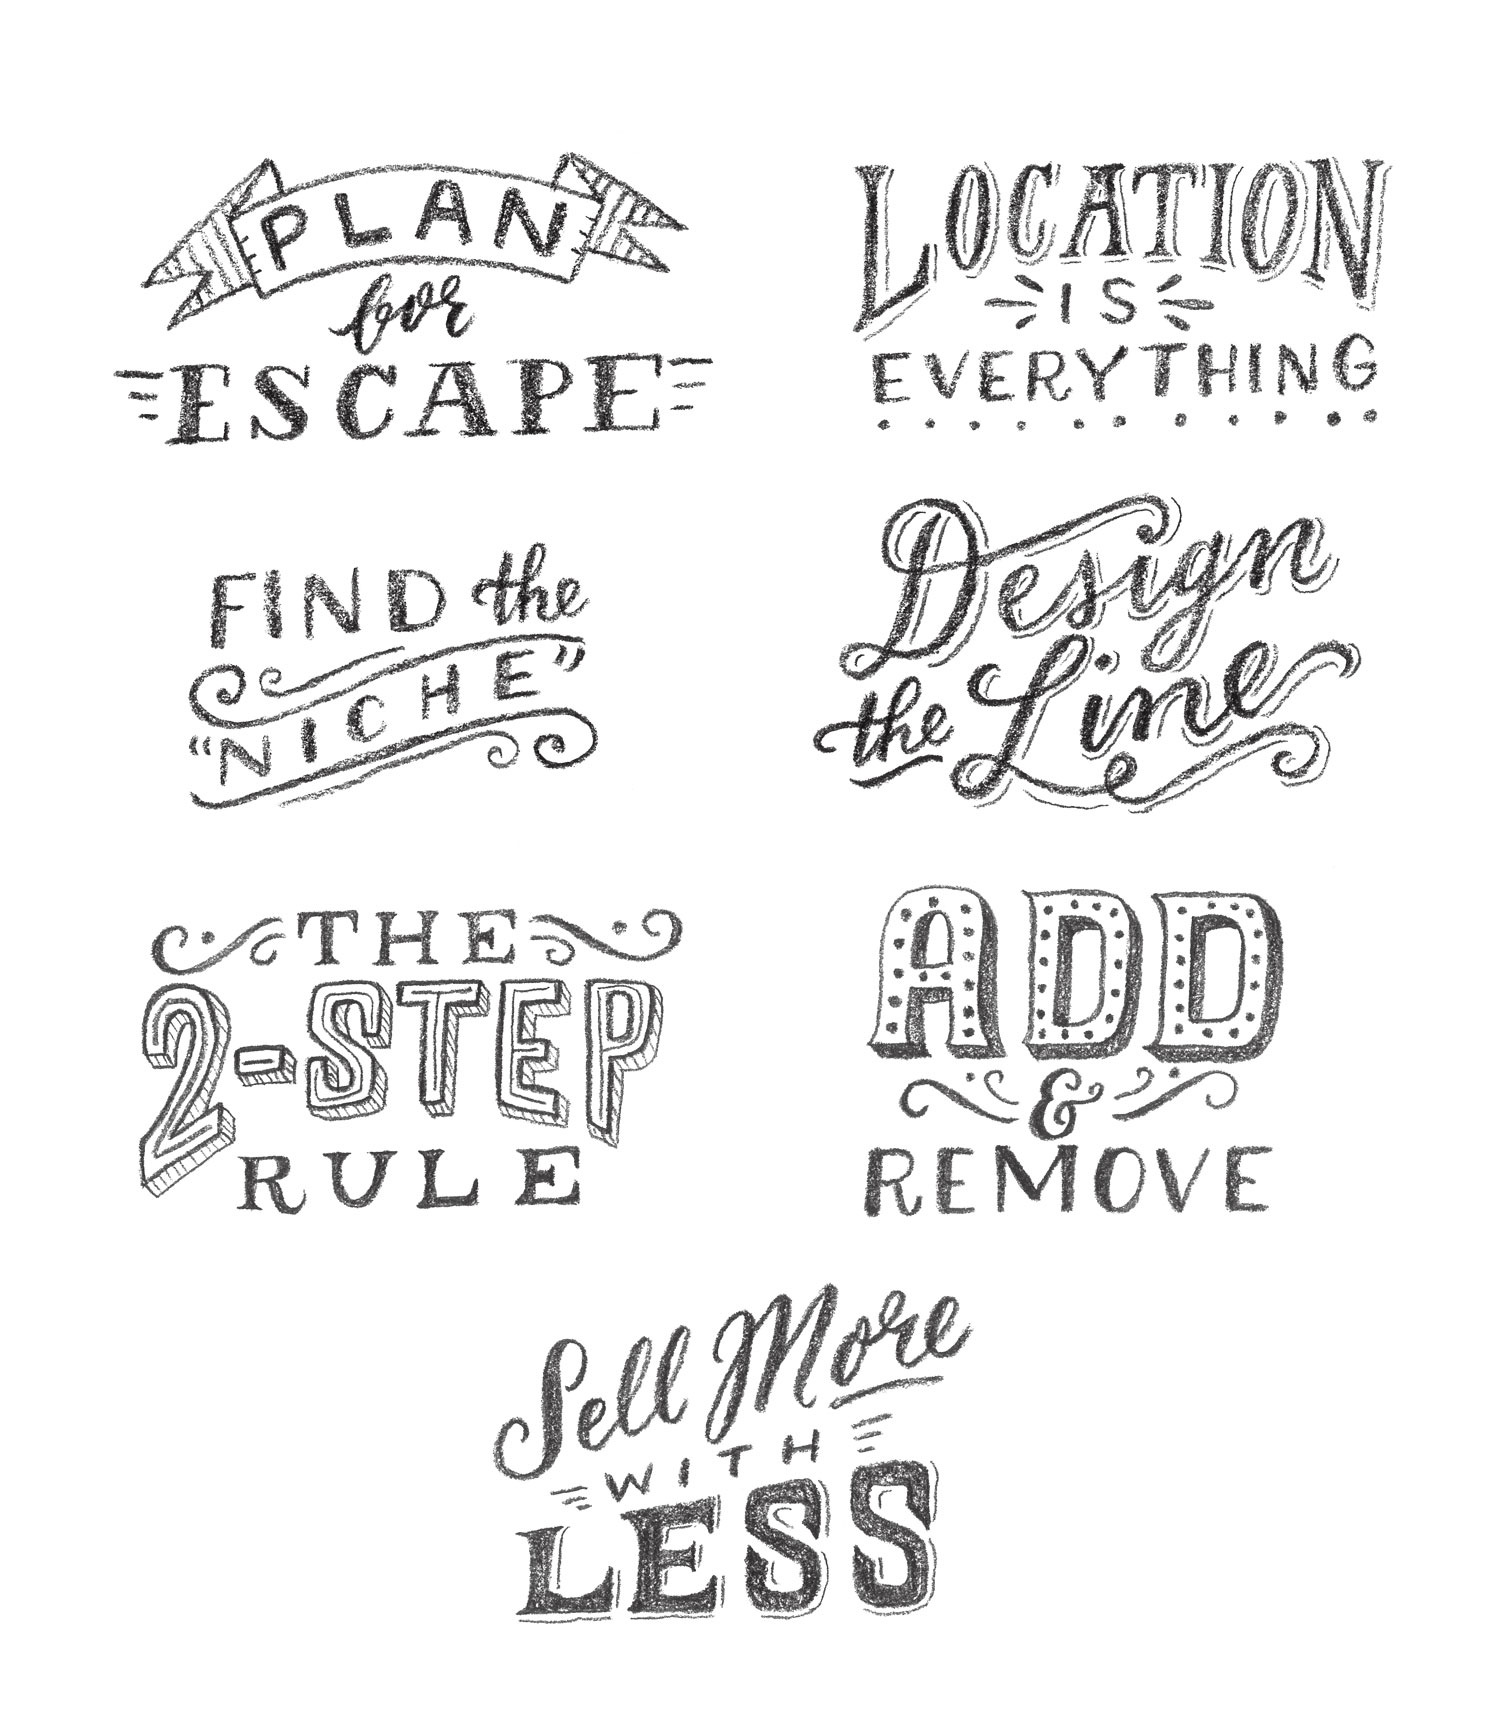 PLAN
for
ESCAPE
LOCATION
IS
EVERYTHING
FIND the
“NICHE”
Design
the Line
THE
2-STEP
RULE
ADD
&
REMOVE
Sell More
WITH
LESS